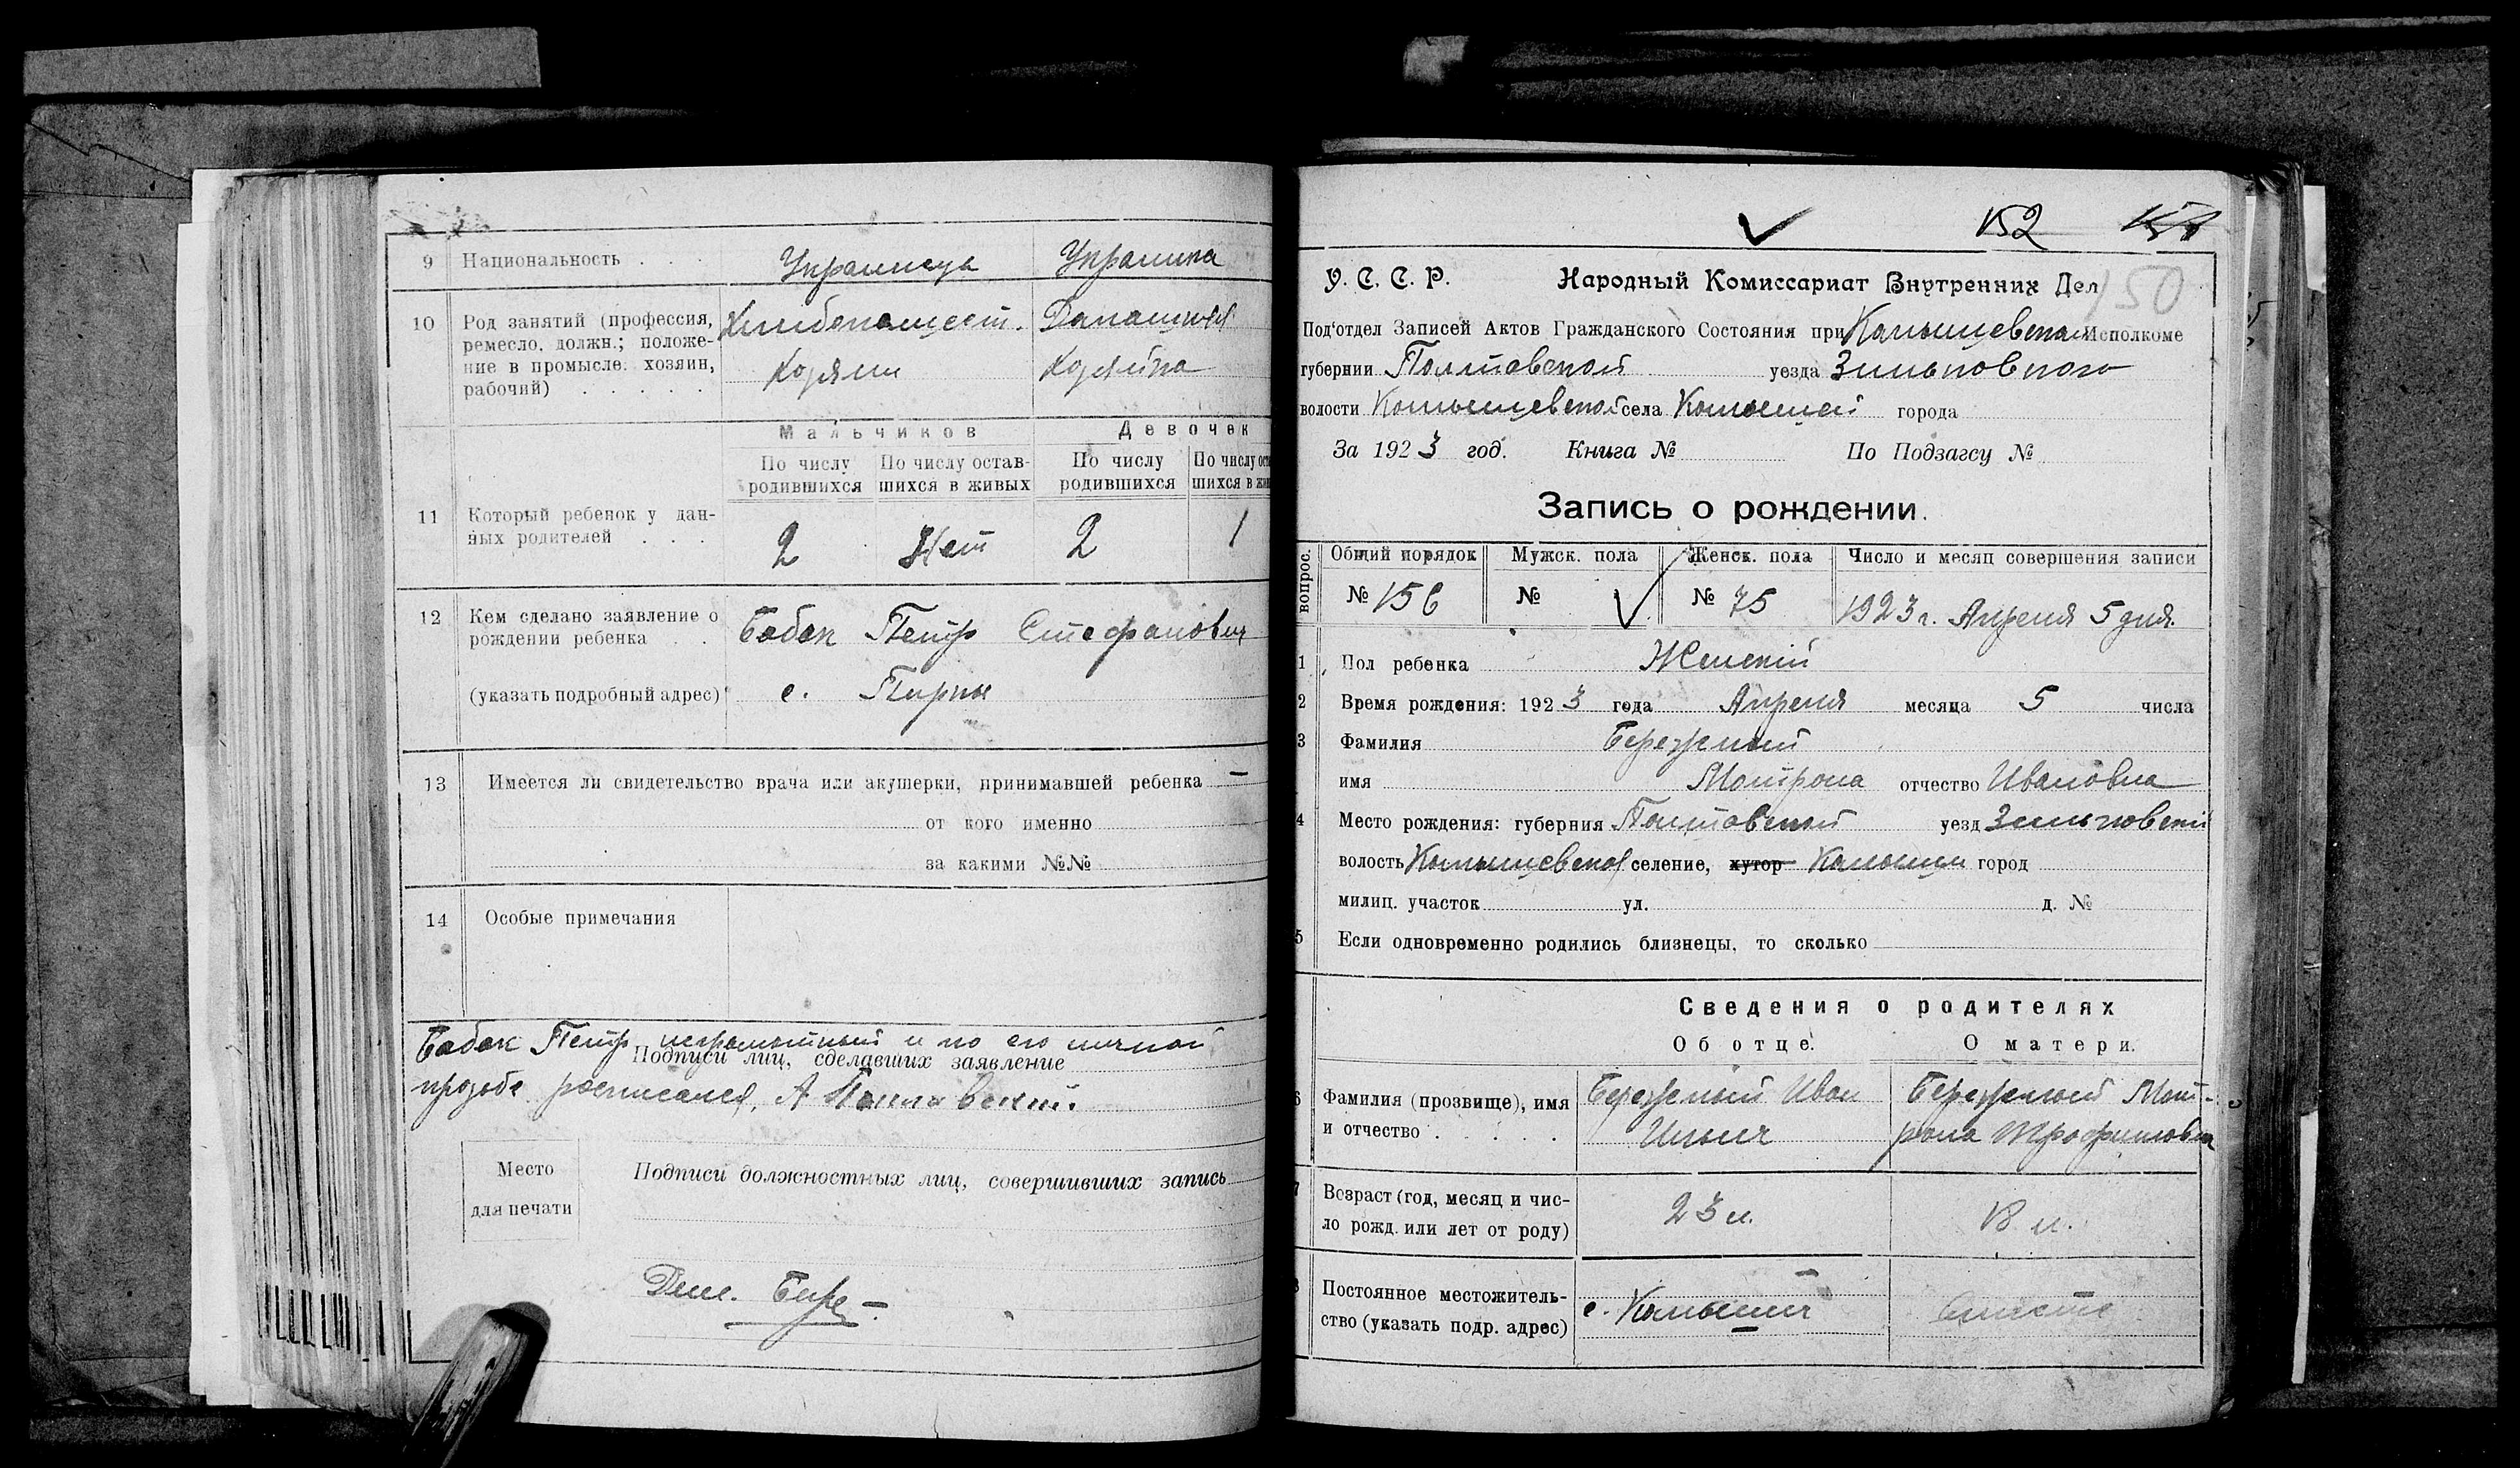 9 Национальность . . . Украинецъ Украинка
10 Род занятий (профессия, Хлебопашест. Домашняя
ремесло, должн.; положе-
ние в промысле: хозяин, Хозяин Хозяйка
рабочий) . . . . .
Мальчиков Девочек
По числу По числу остав- По числу По числу ост
родившихся шихся в живых родившихся шихся в жи
11 Который ребенок у дан-
ных родителей . . . 2 Нет 2 1
12 Кем сделано заявление о Бабак Петр Стефанович
рождении ребенка . .
(указать подробный адрес) с. Пирки
13 Имеется ли свидетельство врача или акушерки, принимавшей ребенка —
от кого именно
за какими №№
14 Особые примечания
Бабак Петр неграмотный и по его личной
Подписи лиц, сделавших заявление
прозьбе росписался, А
Место
для печати
Подписи должностных лиц, совершивших запись
152
150
У. С. С. Р. Народный Комиссариат Внутренних Дел
Под'отдел Записей Актов Гражданского Состояния при Камышевском Исполкоме
губернии Полтавской уезда Зиньковского
волости Комышевской села Комышей города
За 1923 год. Книга № По Подзагсу №
Запись о рождении.
вопрос. Общий порядок Мужск. пола Женск. пола Число и месяц совершения записи
№ 156 № № 75 1923 г. Апреля 5 дня.
1 Пол ребенка Женский
2 Время рождения: 1923 года Апреля месяца 5 числа
3 Фамилия Бережный
имя Мотрона отчество Ивановна
4 Место рождения: губерния Полтавской уезд Зиньковский
волость Комышевской селение, хутор Комыши город
милиц. участок ул. д. №
5 Если одновременно родились близнецы, то сколько
Сведения о родителях
Об отце. О матери.
6 Фамилия (прозвище), имя Бережный Иван Бережный Мот-
и отчество . . . . . Ильич рона Трофимовна
7 Возраст (год, месяц и чис-
ло рожд. или лет от роду) 23 л. 18 л.
8 Постоянное местожитель-
ство (указать подр. адрес) с. Комыши